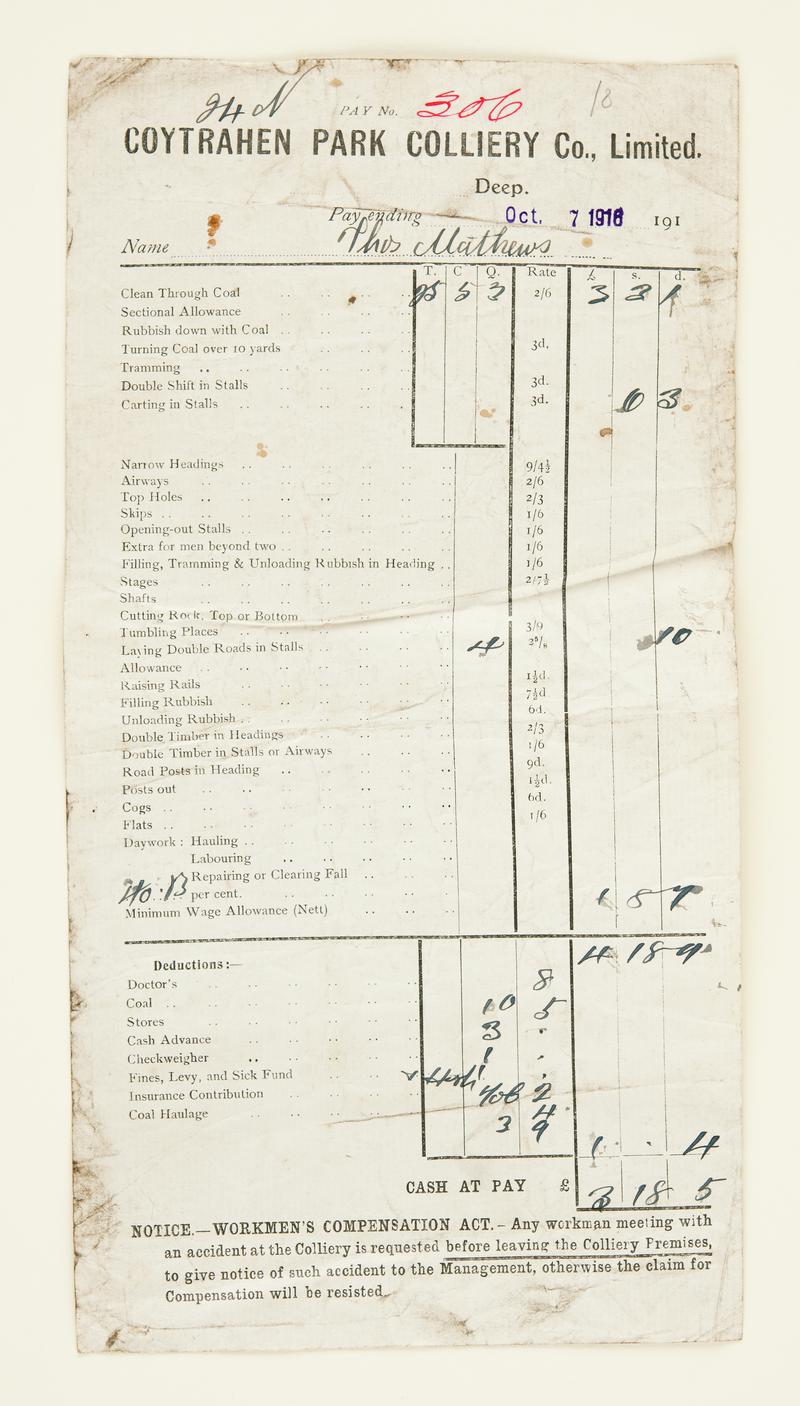 PAY No. 306 18
COYTRAHEN PARK COLLIERY Co., Limited.
Deep.
Pay ending Oct. 7 1916 191
Name Thos Mathews
T. C Q. Rate £ s. d.
Clean Through Coal 25 5 3 2/6 3 3 1
Sectional Allowance
Rubbish down with Coal
Turning Coal over 10 yards 3d.
Tramming
Double Shift in Stalls 3d.
Carting in Stalls 3d. 10 3
Narrow Headings 9/4½
Airways 2/6
Top Holes 2/3
Skips 1/6
Opening-out Stalls 1/6
Extra for men beyond two 1/6
Filling, Tramming & Unloading Rubbish in Heading 1/6
Stages 2/7½
Shafts
Cutting Rock, Top or Bottom
Tumbling Places 3/9
Laying Double Roads in Stalls 4 2⁵/₈ 10
Allowance
Raising Rails 1½d.
Filling Rubbish 7½d
Unloading Rubbish 6d.
Double Timber in Headings 2/3
Double Timber in Stalls or Airways 1/6
Road Posts in Heading 9d.
Posts out 1½d.
Cogs 6d.
Flats 1/6
Daywork: Hauling
Labouring
Repairing or Clearing Fall
per cent. 1 5 7
Minimum Wage Allowance (Nett)
4 18 9
Deductions:—
Doctor's 8
Coal 10 5
Stores 3
Cash Advance
Checkweigher 1
Fines, Levy, and Sick Fund
Insurance Contribution 4
Coal Haulage 3 9
1 . 4
CASH AT PAY £ 3 18 5
NOTICE.—WORKMEN'S COMPENSATION ACT.- Any workman meeting with
an accident at the Colliery is requested before leaving the Colliery Premises,
to give notice of such accident to the Management, otherwise the claim for
Compensation will be resisted.